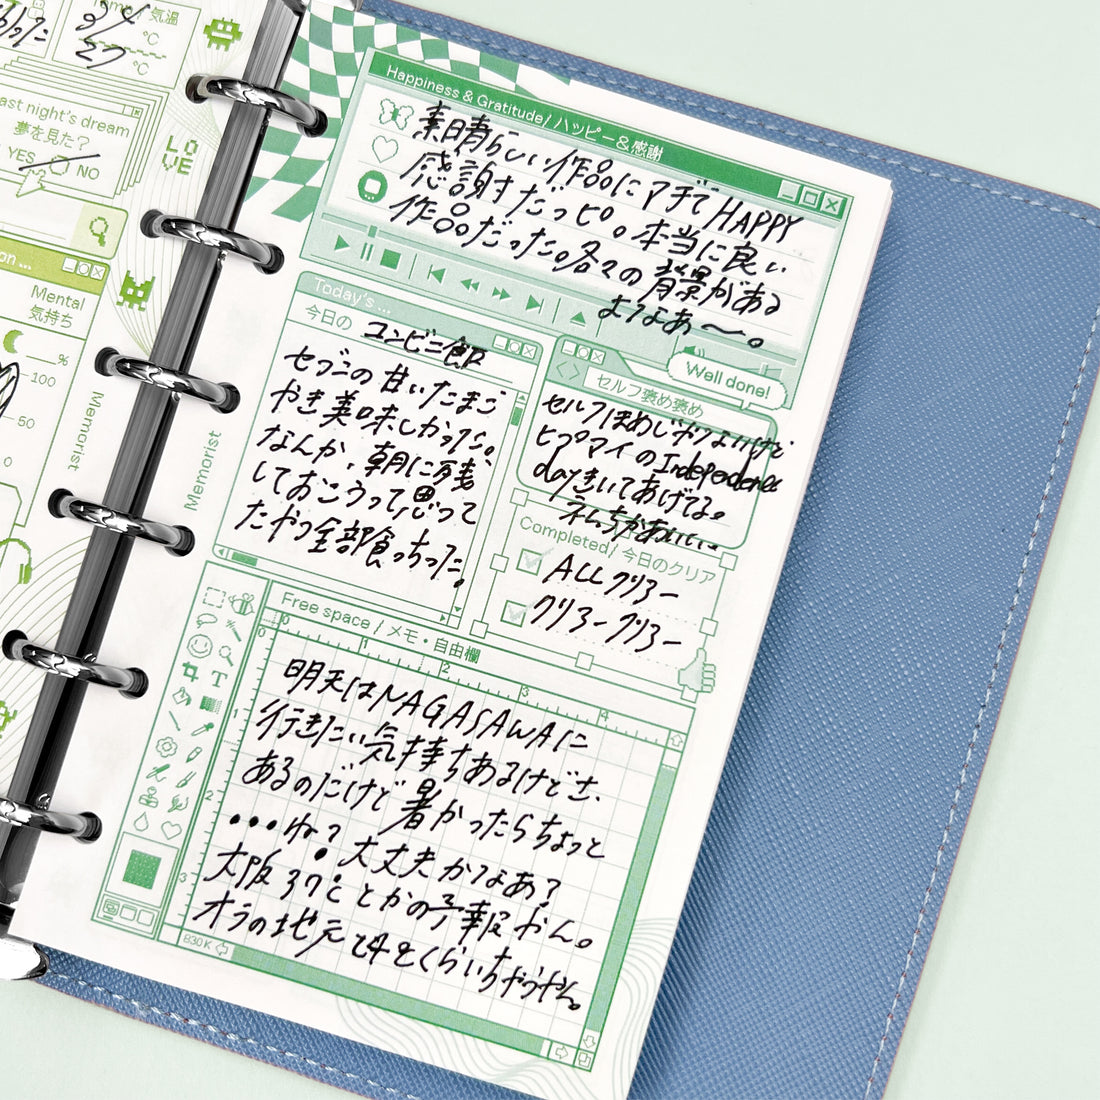 Temp / 気温
℃
27 ℃
ast night's dream
夢を見た?
YES NO
LOVE
on ...
Mental
気持ち
%
100
50
0
Memorist
Memorist
Happiness & Gratitude/ ハッピー&感謝
素晴らしい作品にアザてHAPPY
感謝すだっピ。本当に良い
作品だった。各々の背景がある
よなあ〜。
Today's ...
今日の コンビニ飯
セブンの甘いたまご
やき美味しかった。
なんか、朝に残
しておこうって思って
たやつ全部食っちった。
Well done!
セルフ褒め褒め
セルフほめじゃないけど
ヒプマイのIndependence
day きいてあげてる。
Completed/ 今日のクリア
ALLクリアー
クリアークリアー
Free space / メモ・自由欄
0 1 2 3 4
1
2
3
明天はNAGASAWAに
行きたい気持ちあるけどさ、
あるのだけど暑かったらちょっと
・・・ね? 大丈夫かなあ?
大阪37℃とかの予報やん。
オラの地元
くらいちゃうやん。
830K